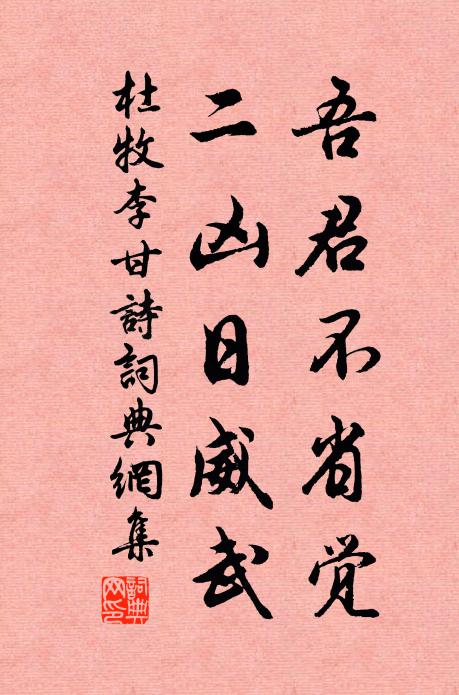 吾君不省觉
二凶日威武
杜牧李甘詩詞典網集
詞典網印